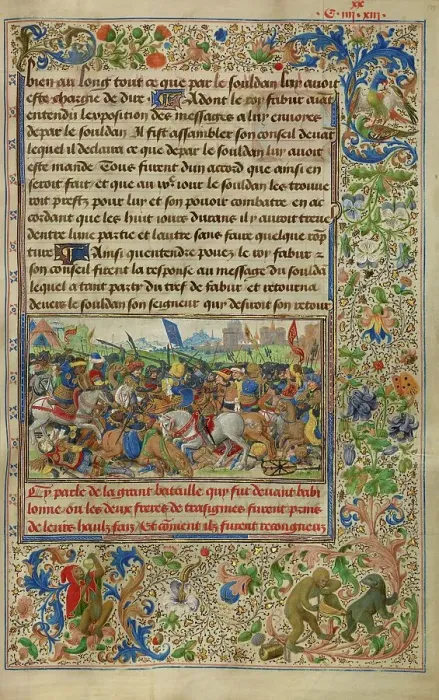 xx
· C · iiii · xiii ·
bien au long tout ce que par le souldan luy avoit
este charchie de dire Adont le roy fabur aiāt
entendu lexposition des messages a luy envoiés
de par le souldan Il fist assembler son conseil devāt
lequel il declaira ce que de par le souldan luy avoit
este mande Tous furent dun accord que ainsi en
seroit fait et que au iour le souldan les trouve
roit prestz pour luy et son povoir combatre en ac
cordant que les huit iours durans il y auroit treve
dentre lune partie et lautre sans faire quelque rōp
ture Ainsi quentendre povez le roy fabur et
son conseil firent la response au message du souldā
lequel a tant party du tref de fabur et retourna
devers le souldan son seigneur quy desiroit son retour
Cy parle de la grant bataille quy fut devant babi
lonne ou les deux freres de trasignies furent prins
de leurs haulz fais Et cōment ilz furent recongneuz